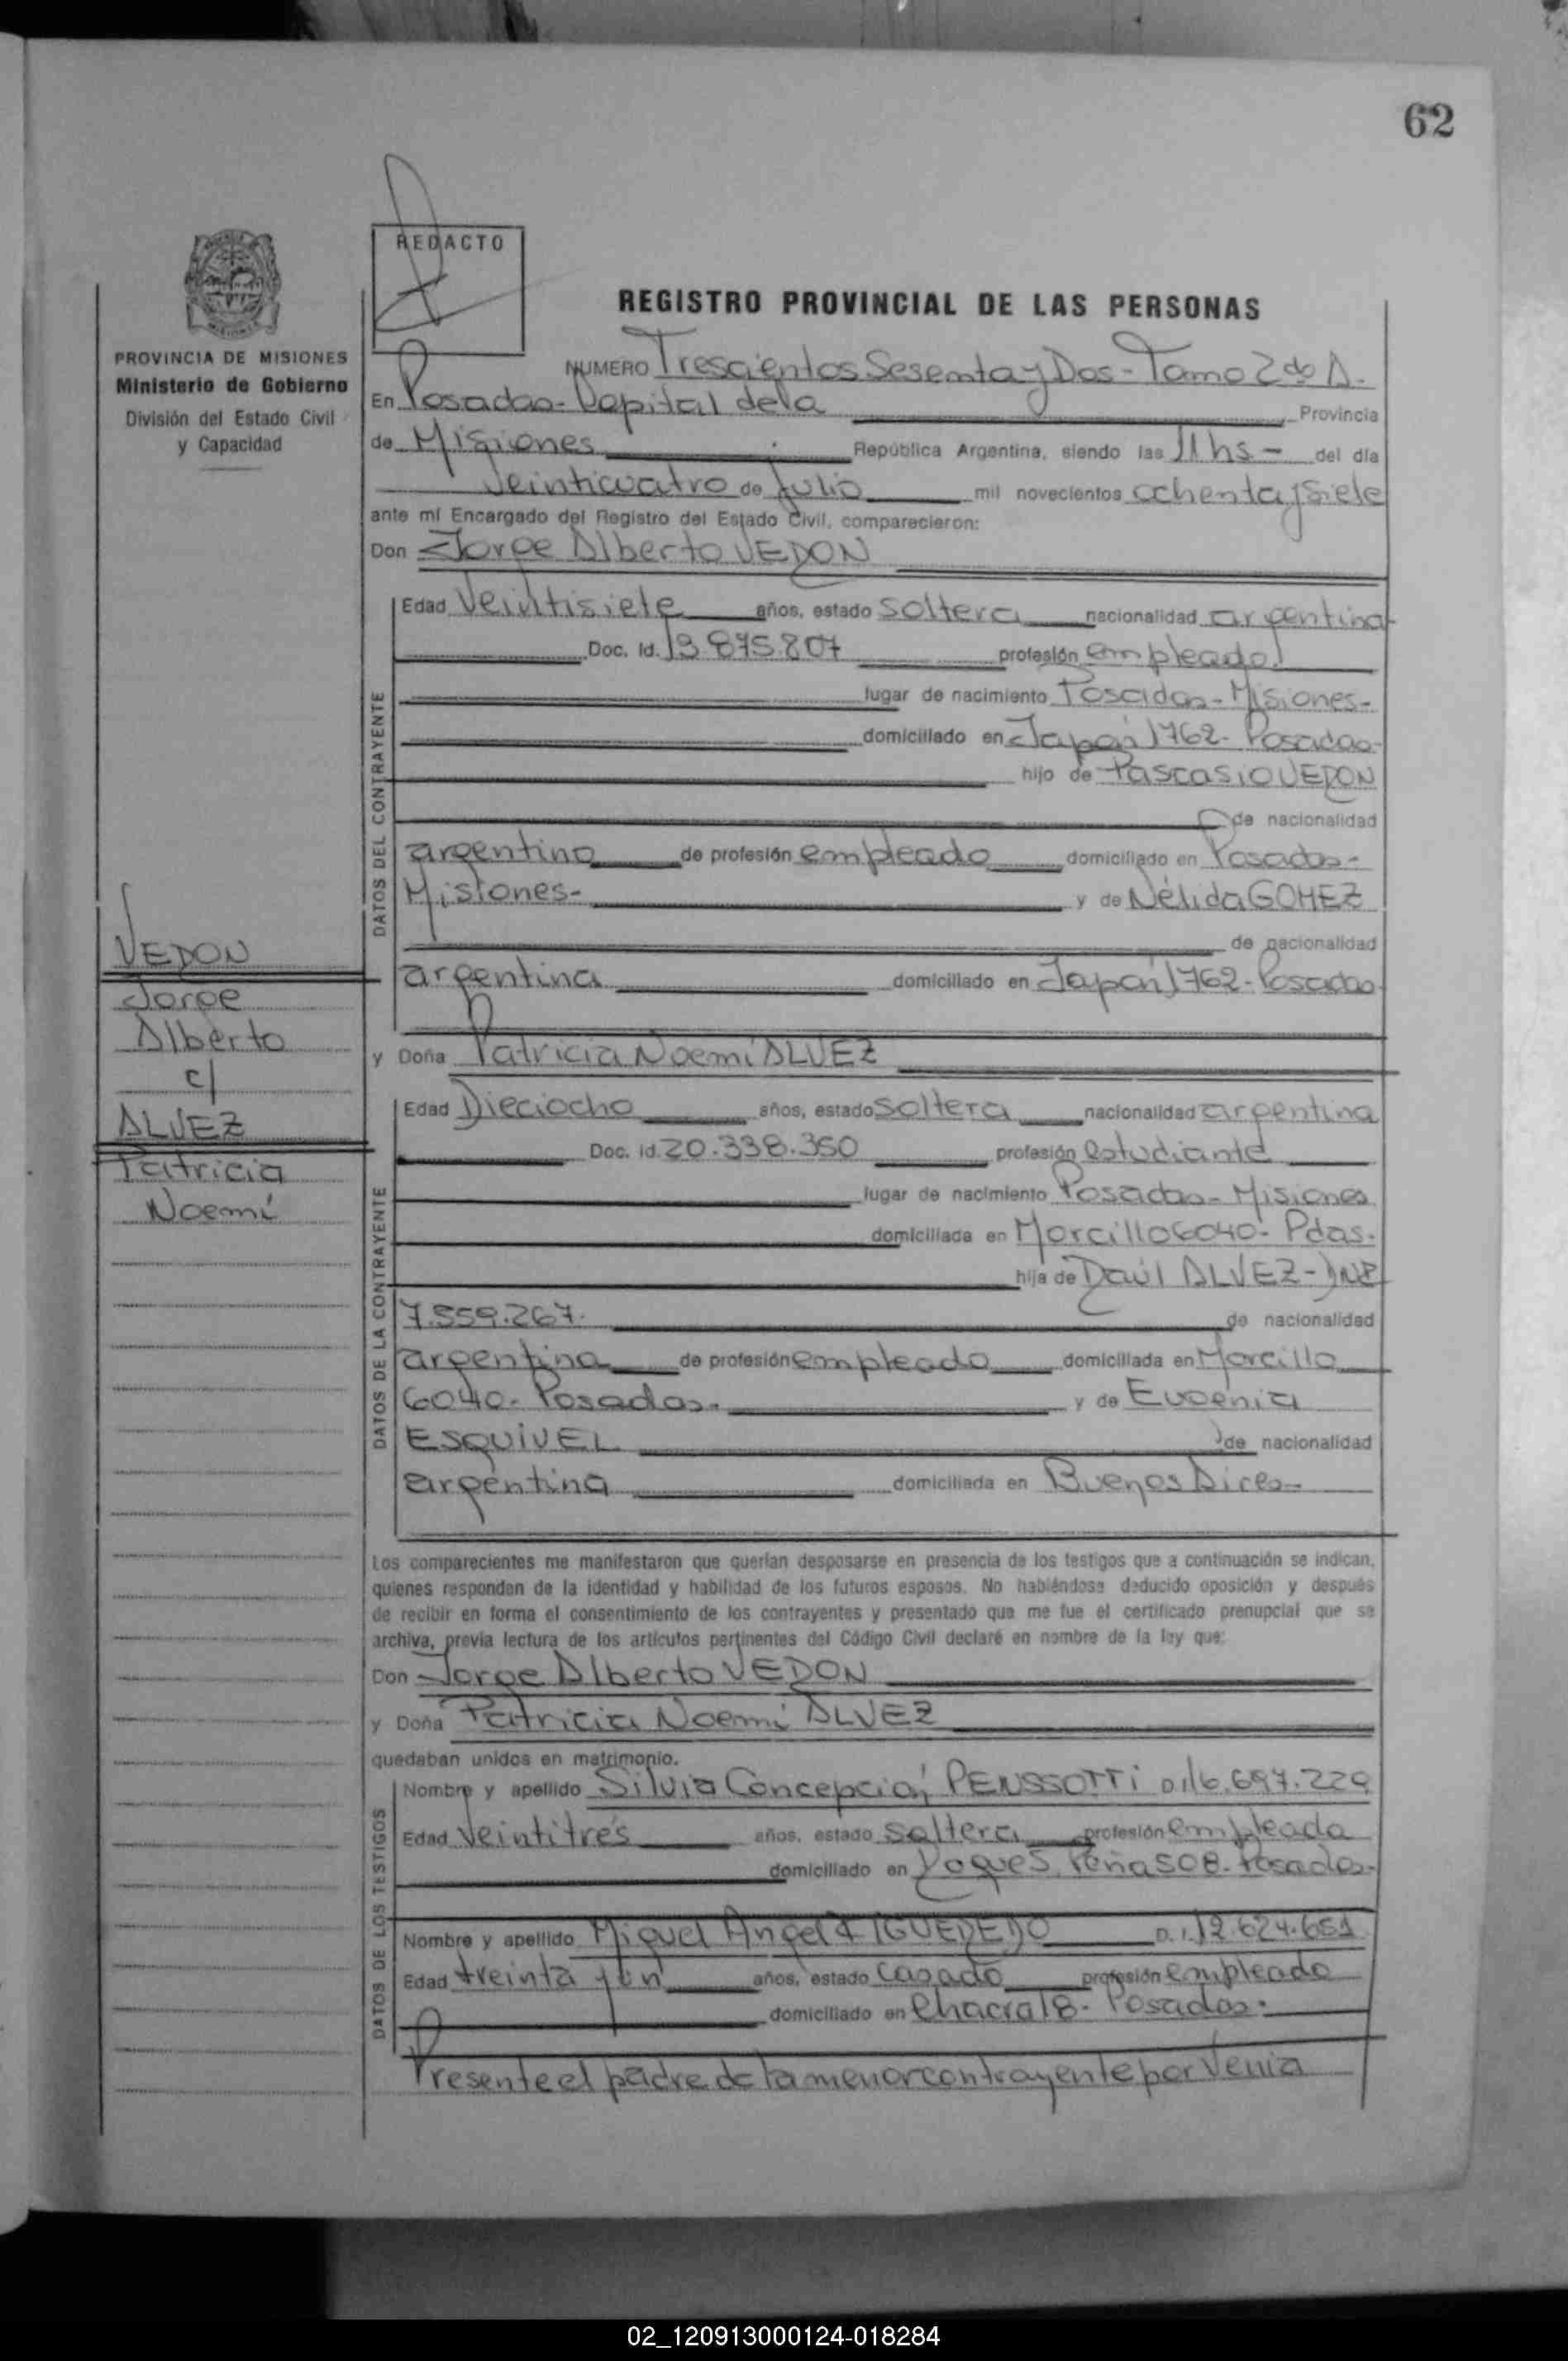 62
REDACTO
REGISTRO PROVINCIAL DE LAS PERSONAS
PROVINCIA DE MISIONES
Ministerio de Gobierno
División del Estado Civil
y Capacidad
NUMERO Trescientos Sesenta y Dos - Tomo 2do A.
En Posadas - Capital de la Provincia
de Misiones República Argentina, siendo las 11 hs - del día
Veinticuatro de Julio mil novecientos ochenta y siete
ante mí Encargado del Registro del Estado Civil, comparecieron:
Don Jorge Alberto VEDON
DATOS DEL CONTRAYENTE
Edad Veintisiete años, estado soltero nacionalidad argentina
Doc. Id. 13.875.807 profesión empleado
lugar de nacimiento Posadas - Misiones -
domiciliado en Japón 1762 - Posadas -
hijo de Pascasio VEDON
de nacionalidad
argentino de profesión empleado domiciliado en Posadas -
Misiones - y de Nélida GOMEZ
de nacionalidad
argentina domiciliado en Japón 1762 - Posadas
VEDON
Jorge
Alberto
c/
ALVEZ
Patricia
Noemí
y Doña Patricia Noemí ALVEZ
DATOS DE LA CONTRAYENTE
Edad Dieciocho años, estado soltera nacionalidad argentina
Doc. Id. 20.338.350 profesión estudiante
lugar de nacimiento Posadas - Misiones
domiciliada en Morcillo 6040 - Pdas.
hija de Raúl ALVEZ - DNI
7.559.267. de nacionalidad
argentina de profesión empleado domiciliada en Morcillo
6040 - Posadas. y de Eugenia
ESQUIVEL de nacionalidad
argentina domiciliada en Buenos Aires -
Los comparecientes me manifestaron que querían desposarse en presencia de los testigos que a continuación se indican,
quienes responden de la identidad y habilidad de los futuros esposos. No habiéndose deducido oposición y después
de recibir en forma el consentimiento de los contrayentes y presentado que me fue el certificado prenupcial que se
archiva, previa lectura de los artículos pertinentes del Código Civil declaré en nombre de la ley que:
Don Jorge Alberto VEDON
y Doña Patricia Noemí ALVEZ
quedaban unidos en matrimonio.
DATOS DE LOS TESTIGOS
Nombre y apellido Silvia Concepción PENSSOTTI D.I 16.697.229
Edad Veintitrés años, estado soltera profesión empleada
domiciliado en Roque S. Peña 508 - Posadas -
Nombre y apellido Miguel Angel FIGUEREDO D.I. 12.624.651
Edad treinta y un años, estado casado profesión empleado
domiciliado en Chacra 18 - Posadas.
Presente el padre de la menor contrayente por Venia
02_120913000124-018284